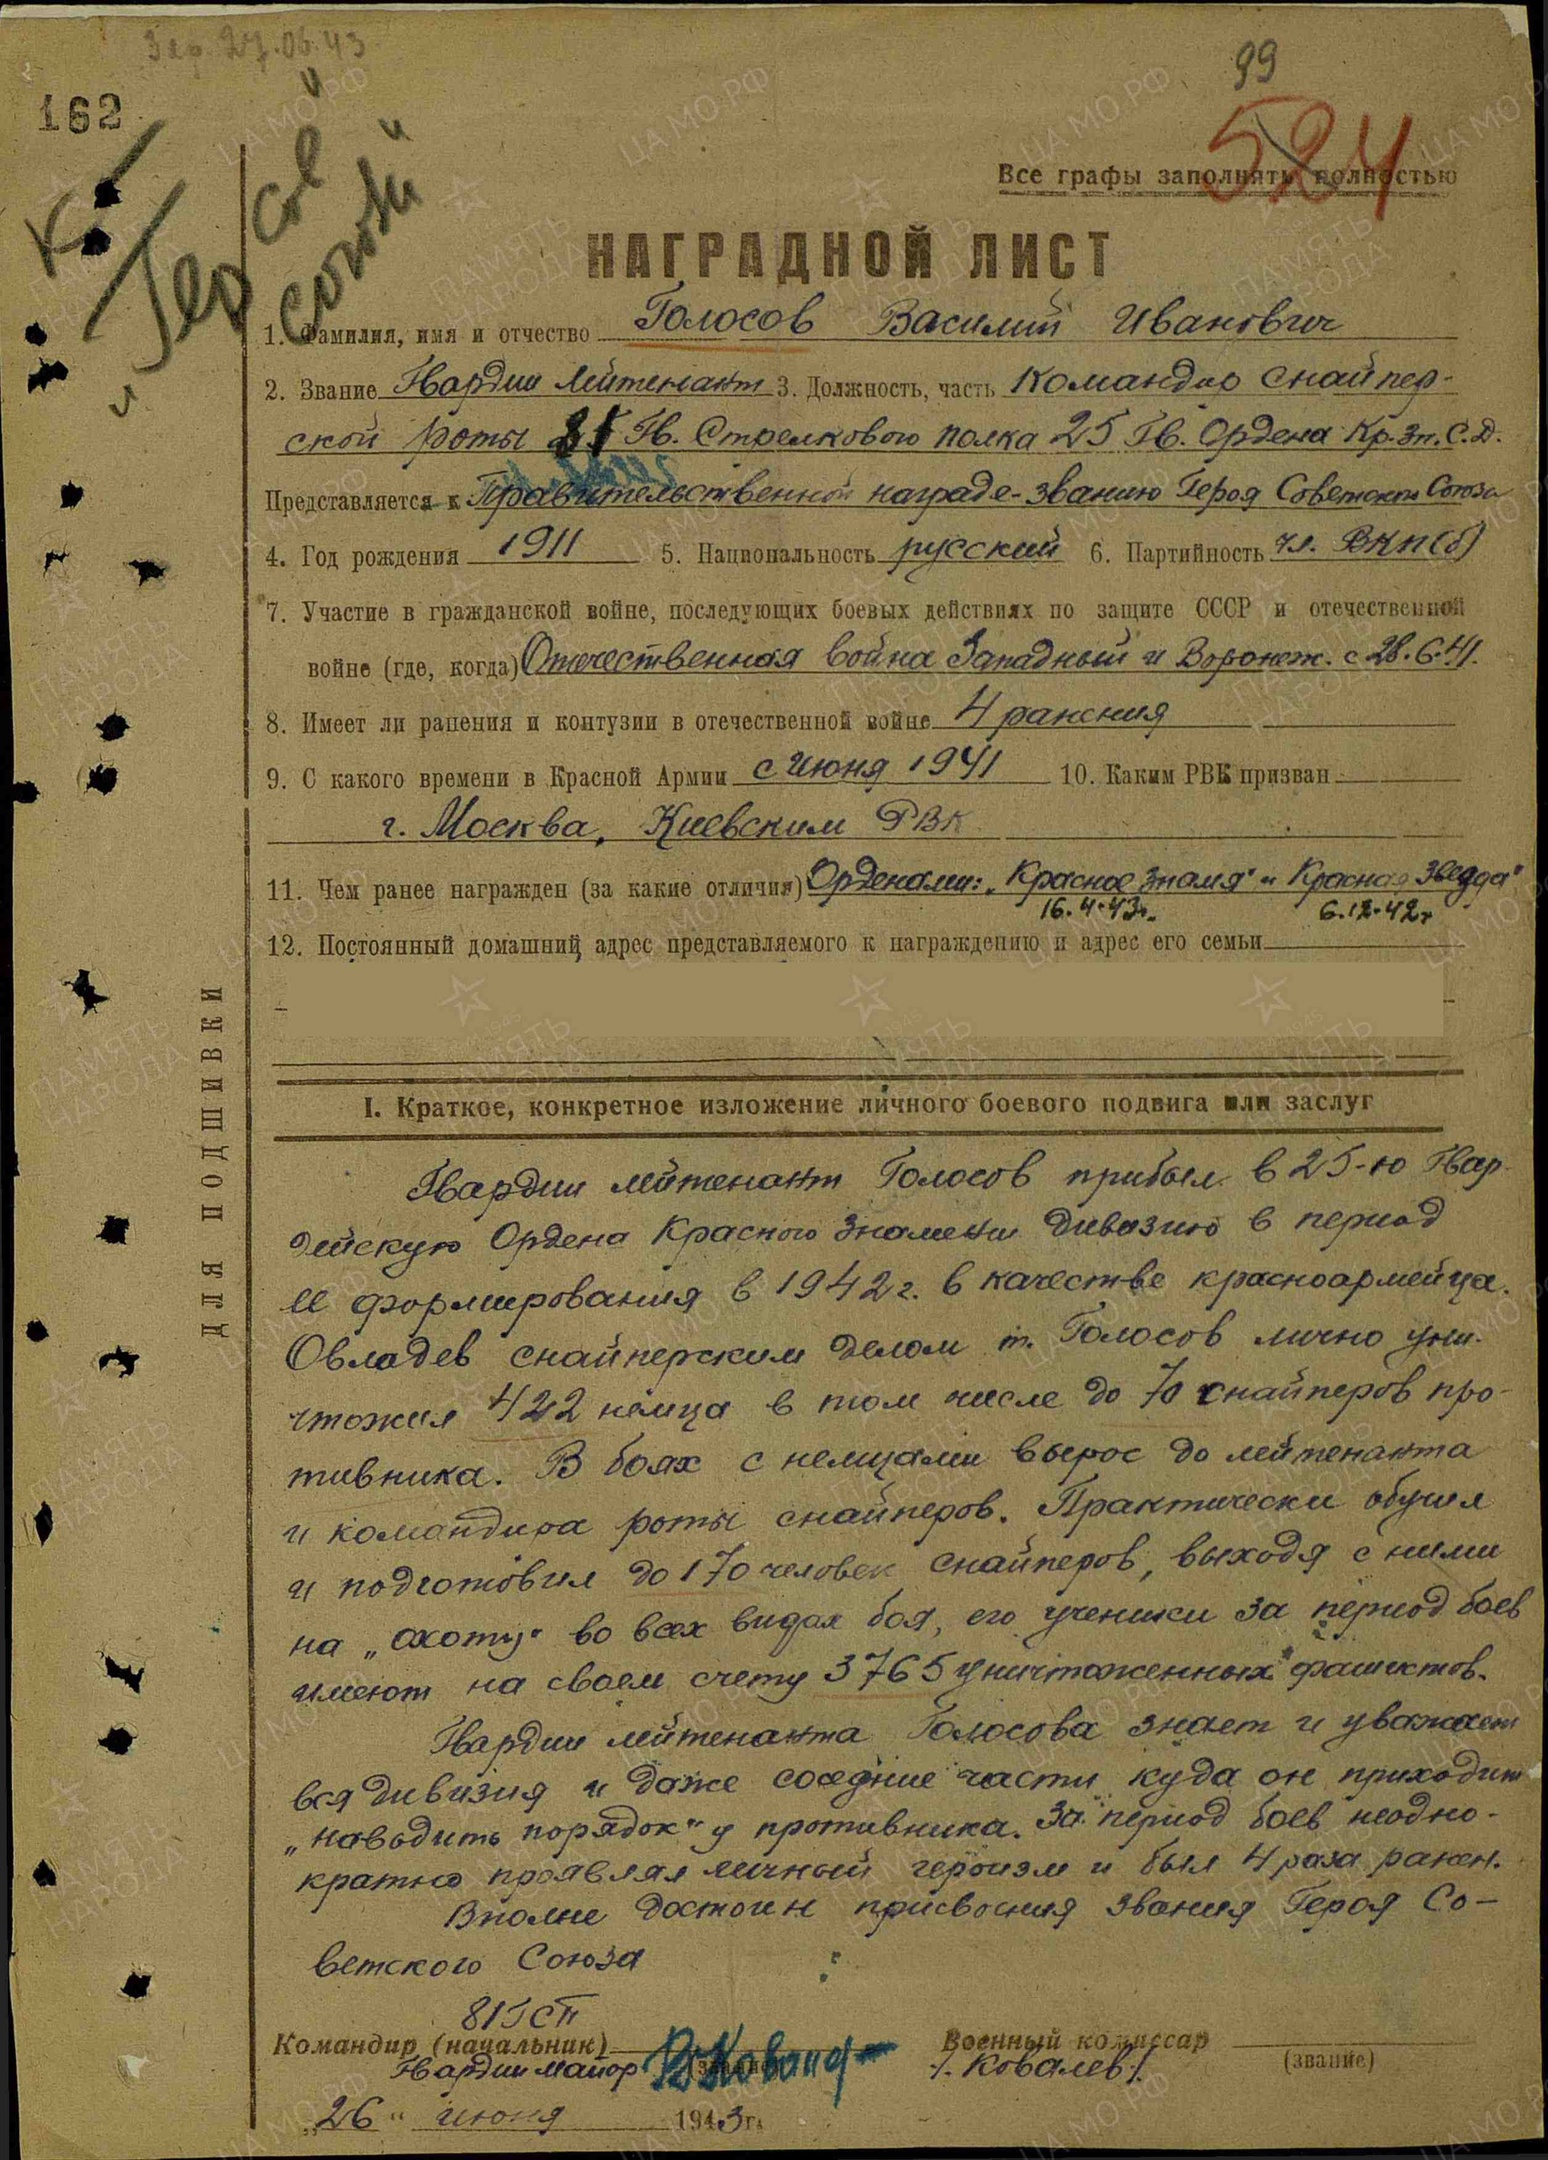 Зар. 27.06.43
99
162
524
К
"Герой Сов. Союза"
Все графы заполнять полностью
НАГРАДНОЙ ЛИСТ
1. Фамилия, имя и отчество Голосов Василий Иванович
2. Звание Гвардии лейтенант 3. Должность, часть Командир снайпер-
ской роты 81 Гв. Стрелкового полка 25 Гв. Ордена Кр. Зн. С.Д.
Представляется к Правительственной награде - званию Героя Советского Союза
4. Год рождения 1911 5. Национальность русский 6. Партийность чл. ВКП(б)
7. Участие в гражданской войне, последующих боевых действиях по защите СССР и отечественной
войне (где, когда) Отечественная война Западный и Воронеж. с 28.6.41.
8. Имеет ли ранения и контузии в отечественной войне 4 ранения
9. С какого времени в Красной Армии с июня 1941 10. Каким РВК призван
г. Москва, Киевским РВК
11. Чем ранее награжден (за какие отличия) Орденами: „Красное Знамя" и „Красная Звезда"
16.4.43г. 6.12.42г
12. Постоянный домашний адрес представляемого к награждению и адрес его семьи
ДЛЯ ПОДШИВКИ
I. Краткое, конкретное изложение личного боевого подвига или заслуг
Гвардии лейтенант Голосов прибыл в 25-ю Гвар-
дейскую Ордена Красного Знамени дивизию в период
ее формирования в 1942 г. в качестве красноармейца.
Овладев снайперским делом т. Голосов лично уни-
чтожил 422 немца в том числе до 70 снайперов про-
тивника. В боях с немцами вырос до лейтенанта
и командира роты снайперов. Практически обучил
и подготовил до 170 человек снайперов, выходя с ними
на „охоту" во всех видах боя, его ученики за период боев
имеют на своем счету 3765 уничтоженных фашистов.
Гвардии лейтенанта Голосова знает и уважает
вся дивизия и даже соседние части куда он приходит
„наводить порядок" у противника. За период боев неодно-
кратно проявлял личный героизм и был 4 раза ранен.
Вполне достоин присвоения звания Героя Со-
ветского Союза
81 ГСП
Командир (начальник) Военный комиссар
Гвардии майор /. Ковалев /. (звание)
„26" июня 1943 г.